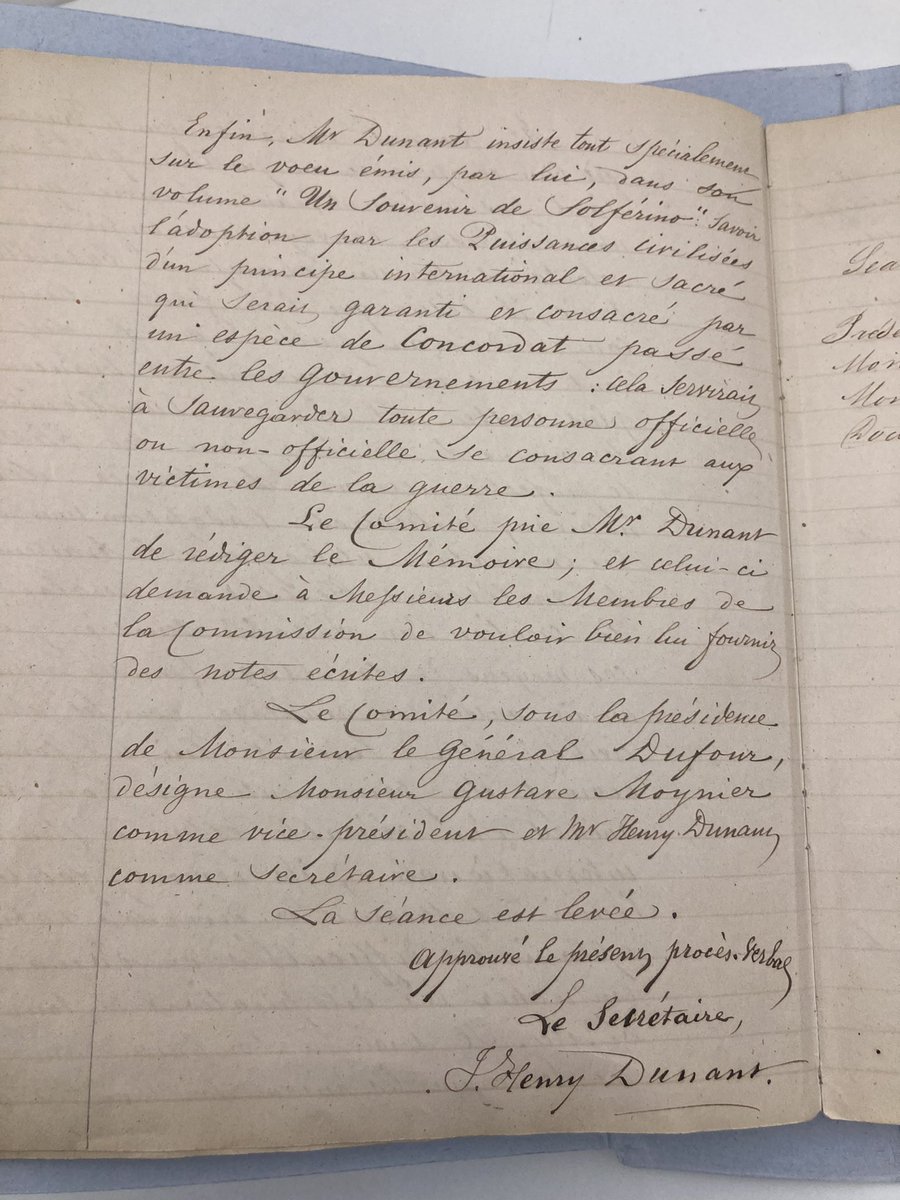 Enfin, Mr Dunant insiste tout spécialement
sur le voeu émis, par lui, dans son
volume "Un Souvenir de Solférino": savoir
l'adoption par les Puissances civilisées
d'un principe international et sacré
qui serait garanti et consacré par
un espèce de Concordat passé
entre les Gouvernements : cela servirait
à sauvegarder toute personne officielle
ou non-officielle se consacrant aux
victimes de la guerre.
Le Comité prie Mr. Dunant
de rédiger le Mémoire; et celui-ci
demande à Messieurs les Membres de
la Commission de vouloir bien lui fournir
des notes écrites.
Le Comité, sous la présidence
de Monsieur le Général Dufour,
désigne Monsieur Gustave Moynier
comme vice-président et Mr Henry Dunant
comme secrétaire.
La séance est levée.
Approuvé le présent procès-verbal
Le Secrétaire,
J. Henry Dunant.